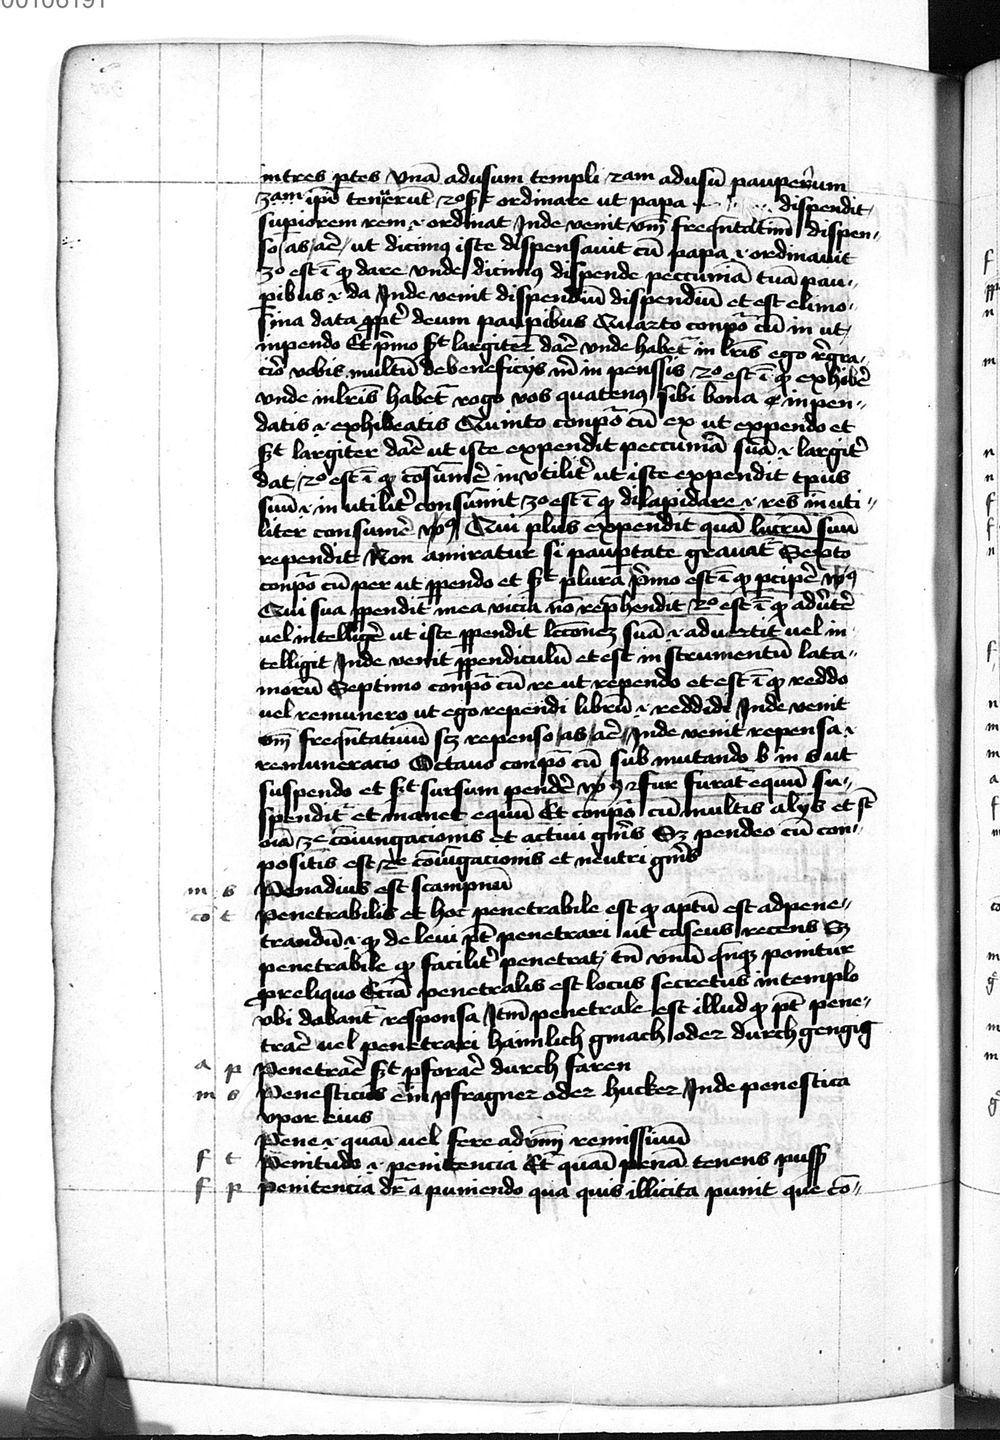 00106191
in tres ptes vnā ad usum templi 2am ad usū pauperum
3am ipī tenuerūt 2o sigt ordinare ut papa dispendit
supiorem rem i ordinat Inde venit vm̄ freqntatiuū dispen-
so as arē ut dicimus iste dispensauit cū papa i ordinauit
3o est i q dare vnde dicimus dispende peccuniā tuā pau-
pibus i da Inde venit dispendiū dispendiū et est elimo-
sina data ppt deum paupibus Quarto conpo cū in ut
inpendo Et pmo sigt largiter dare vnde habet in lris ego regra-
cior vobis multū de beneficijs m in penssis 2o est i q exhibe
vnde in lris habet rogo vos quatenus sibi bona inpen-
datis i exhibeatis Quinto conpo cū ex ut expendo et
sigt largiter dare ut iste expendit peccuniā suā i largit
dat 2o est i q consumē in vtilit ut iste expendit tpus
suū i in utilit consumit 3o est i q dilapidare i res inuti-
liter consumē vsus Qui plus expendit quā lucrū suū
rependit Non amiratur si pauptate grauat Sexto
conpo cū per ut ppendo et sigt plura pmo est i q pcipē vsus
Qui sua ppendit mea vicia nō rephendit 2o est i q aduertē
vel intelligē ut iste ppendit lecconez suā i aduertit vel in
telligit Inde venit ppendiculū et est instrumentū lata-
morū Septimo conpo cū re ut rependo et est i q reddo
vel remunero ut ego rependi librū i reddidi Inde venit
vm̄ freqntatiuū scz repenso as are Inde venit repensa i
remuneracio Octauo conpo cū sub mutando b in s ut
suspendo et sigt sursum pendē vsus fur furat equū su-
spendit et manet equū Et conpo cū multis alijs et st
oīa 3e coniungacionis et actiui gnis Sz pendeo cū con-
positis est 2e coniugacionis et neutri gnis
m s Penadius est scampnū
co t Penetrabilis et hoc penetrabile est q aptū est ad pene-
trandū i q de leui pt penetrari ut caseus recens Sz
penetrabile q facilit penetrat tn vnū qnqz ponitur
pro reliquo Eciā penetralis est locus secretus in templo
vbi dabant responsa Itm penetrale est illud q pt pene-
trare vel penetrari haimlich gmach oder durchgengig
a p Penetrare sigt pforare durch faren
m s Penesticus ein pfragner oder hucker Inde penestica
vxor eius
Pene i quasi vel fere aduerbium remissiuū
f t Penitudo i penitencia Et quasi penā tenens
f p Penitencia dr a puniendo qua quis illicita punit que co-